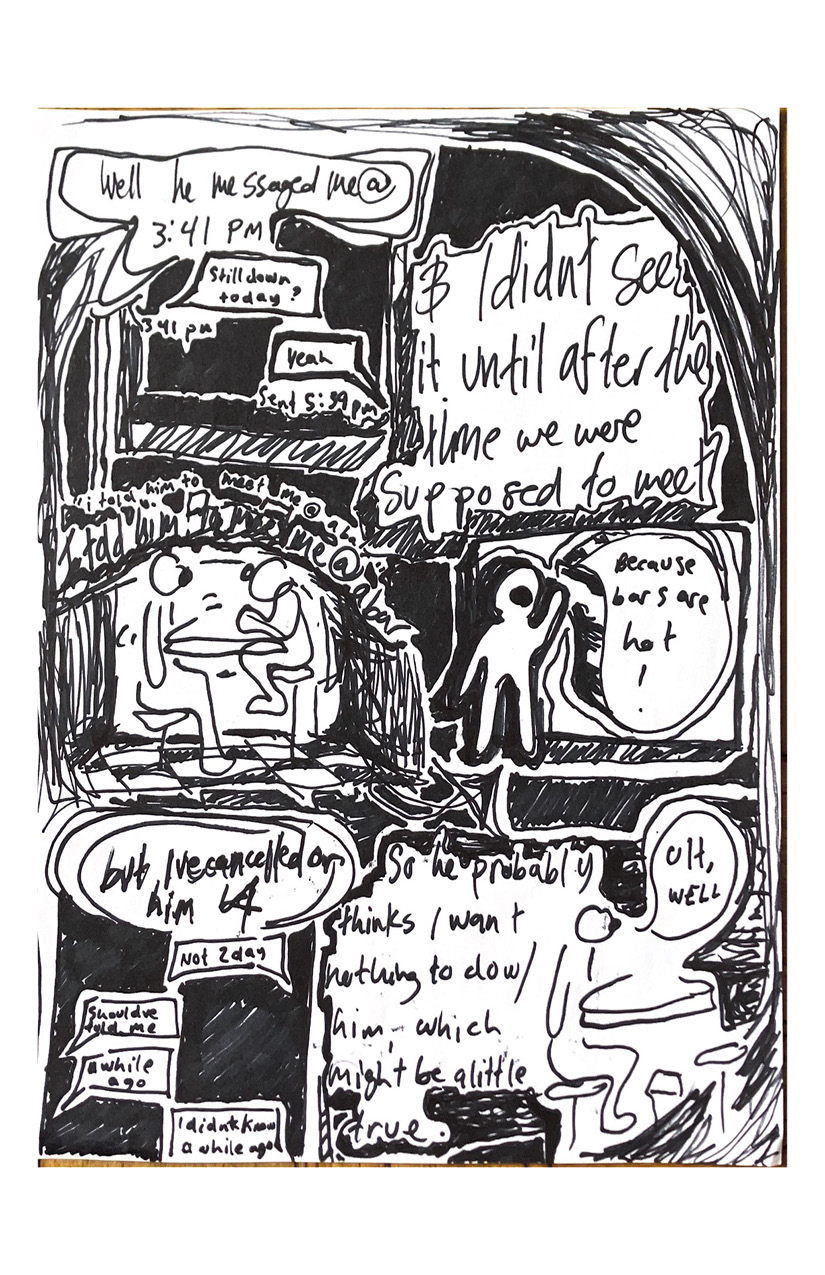 Well he messaged me@
3:41 PM
Still down
today?
3:41 pm
Yeah
Sent 5:39pm
& I didnt See
it until after the
time we were
Supposed to meet
i told him to meet me @ a bar
I told him to meet me @ a bar
Because
bars are
hot
!
but I've cancelled on
him b4
Not 2day
Should've
told me
a while
ago
I didnt know
a while ago
So he probably
thinks I want
nothing to do w/
him, which
might be a little
true.
Uh,
WELL